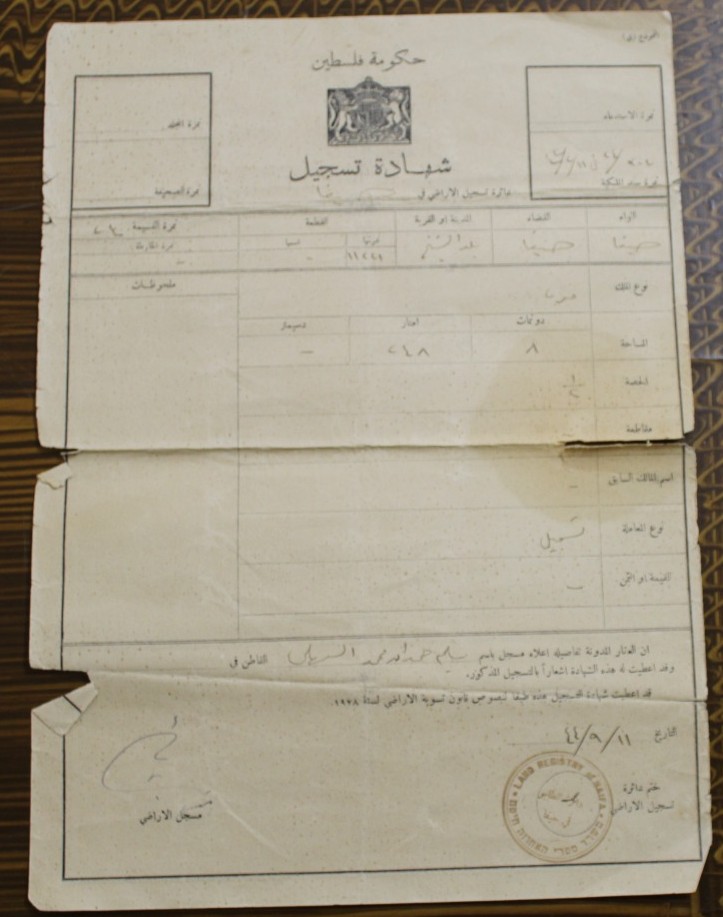 حكومة فلسطين
نمرة الاستدعاء
نمرة المجلد
نمرة الصحيفة
شهادة تسجيل
دائرة تسجيل الاراضي في حيفا
اللواء القضاء المدينة او القرية القطعة نمرة القسيمة
حيفا حيفا بلد الشيخ نمرتها اسمها
١١٢٤١ -
نوع الملك ملحوظات
دونمات امتار دسيمتار
المساحة ٨ ٢٤٨ —
الحصة ١/٢
مقاطعة
اسم المالك السابق —
نوع المعاملة تسجيل
القيمة او الثمن —
ان العقار المدونة تفاصيله اعلاه مسجل باسم القاطن في
وقد اعطيت له هذه الشهادة اشعاراً بالتسجيل المذكور.
قد اعطيت شهادة التسجيل هذه طبقاً لنصوص قانون تسوية الاراضي لسنة ١٩٢٨
التاريخ ٤٤/٩/١١
ختم دائرة
تسجيل الاراضي
مسجل الاراضي
LAND REGISTRY OF HAIFA